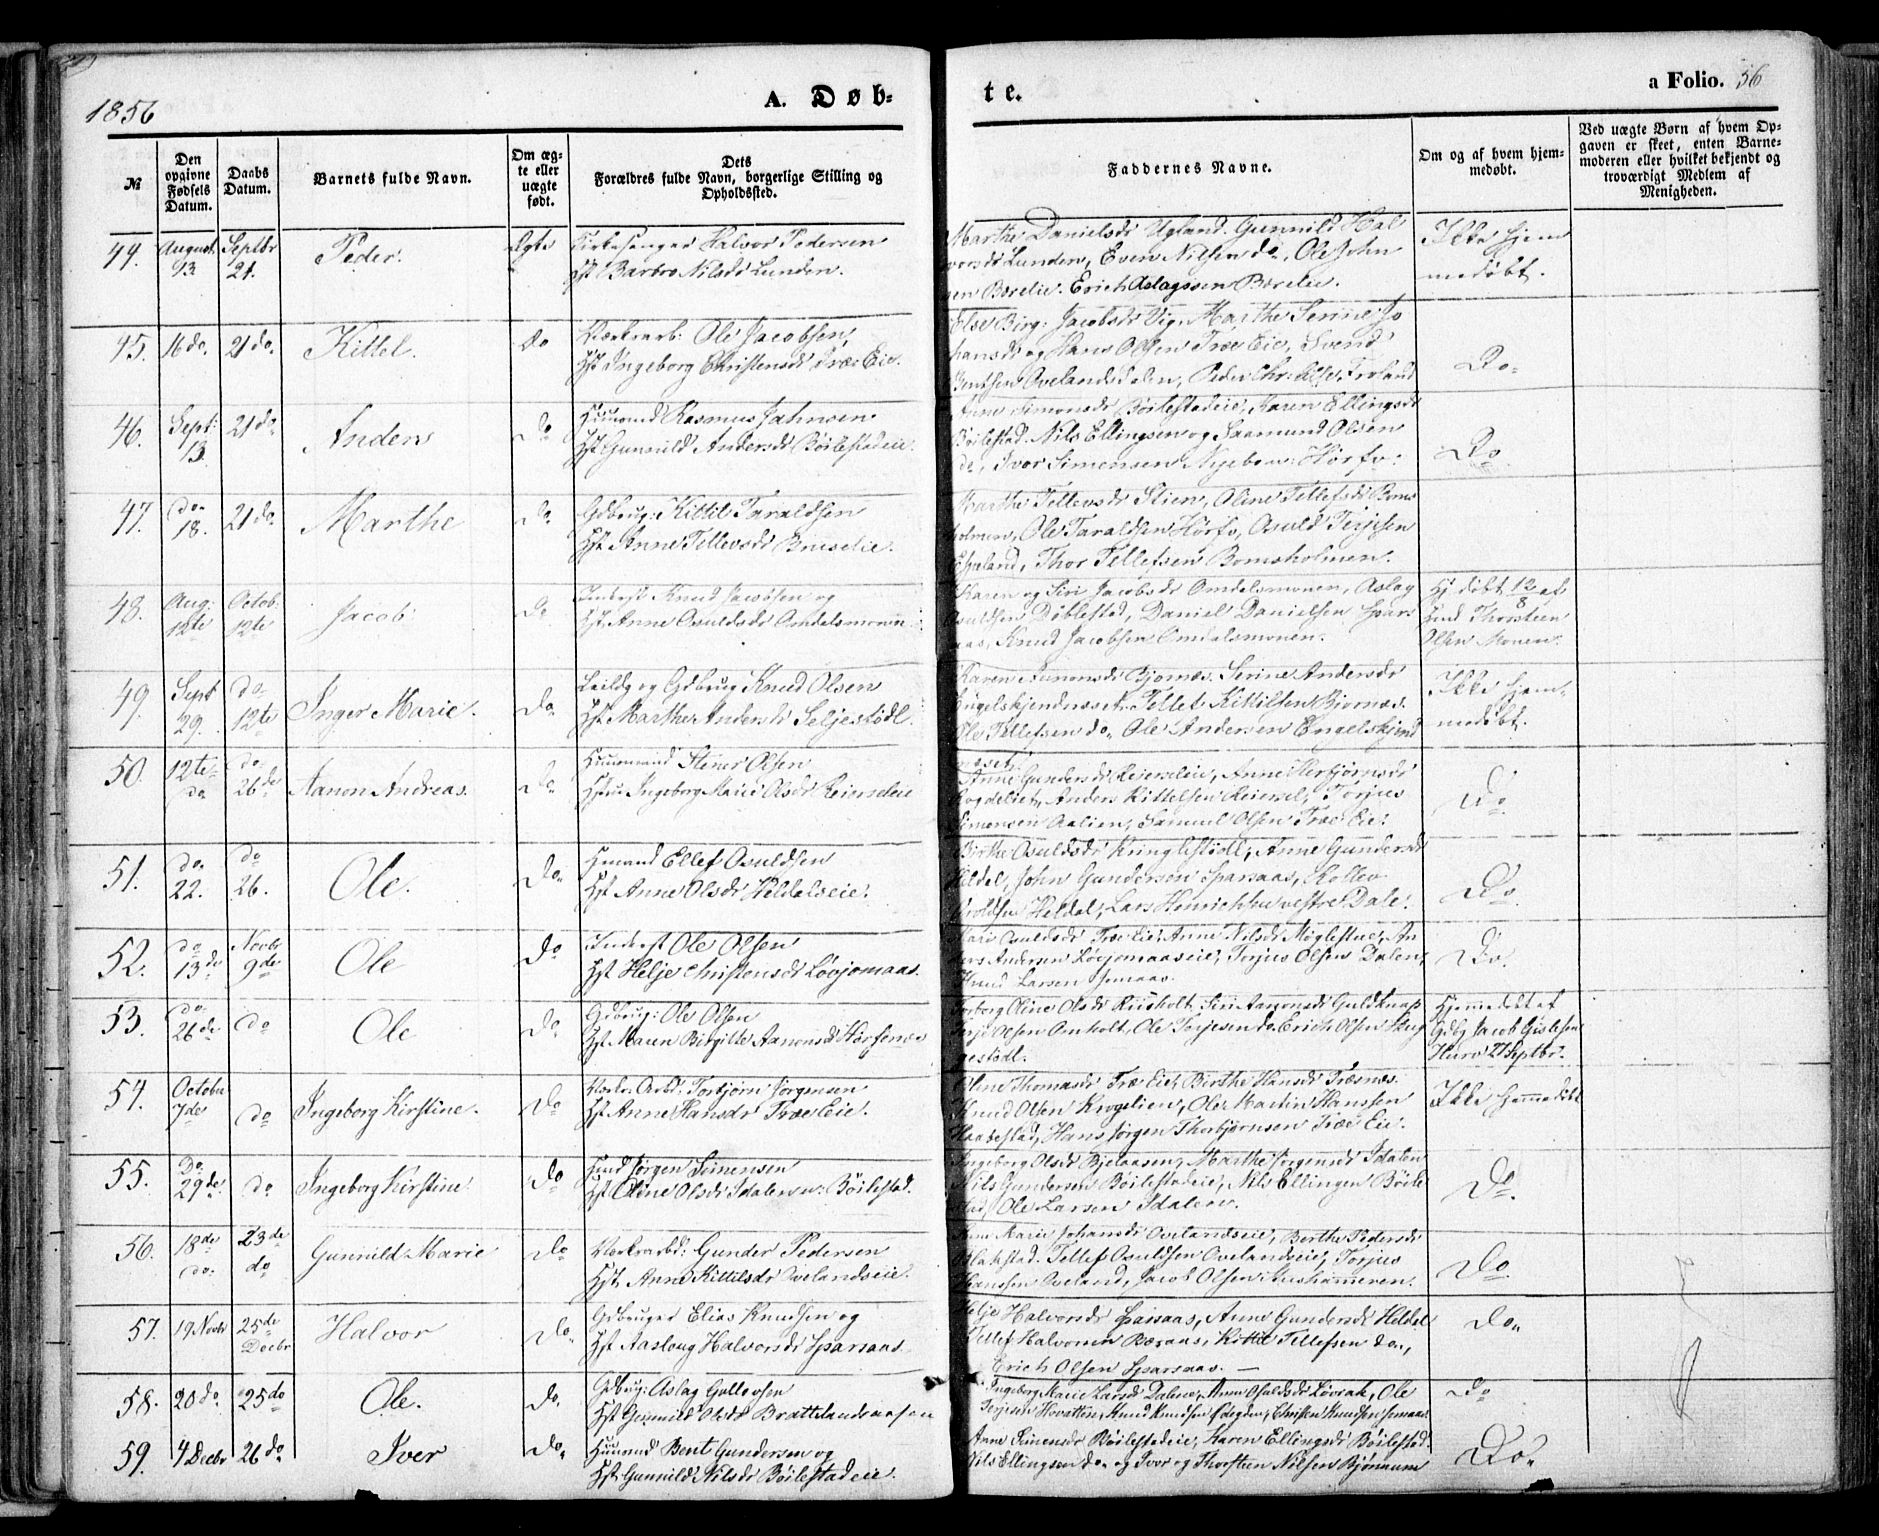 1856
A. Døb-
te.
a Folio. 56
№
Den opgivne Fødsels Datum.
Daabs Datum.
Barnets fulde Navn.
Om ægte eller uægte født.
Dets Forældres fulde Navn, borgerlige Stilling og Opholdssted.
Faddernes Navne.
Om og af hvem hjemmedøbt.
Ved uægte Børn af hvem Opgaven er skeet, enten Barnemoderen eller hvilket bekjendt og troværdigt Medlem af Menigheden.
44. August 13. Septbr 21. Peder. Ægte
Kirkesanger Halvor Pedersen
Hst Barbro Nilsdr Lunden.
Marthe Danielsdr Ugland. Gunnild Hal
vorsdr Lunden, Even Nilsen do, Ole John
sen Børelie. Erich Aslagssen Børelie.
Ikke hjem
medøbt.
45. 16 do. 21 do. Kittel. do
Værkarb: Ole Jacobsen,
Hst Ingeborg Christensdr Træe Eie.
Else Birg: Jacobsdr Vig, Marthe Serine Jo
hansdr og Hans Olsen Træe Eie, Svend
Bentsen Ovelandsdalen, Peder Chr: Froland
Do.
46. Sept: 13. 21 do. Anders Do
Huusmand Rasmus Jahnsen
Hst Gunnild Andersdr Bøilestadeie.
Anne Simonsdr Bøilestadeie, Karen Ellingsdr
Bøilestad. Nils Ellingsen og Saamund Olsen
do, Ivor Simensen Nyeboe: Hørfo:
Do
47. do. 18. 21 do. Marthe Do
Gdbrug: Kittil Taraldsen
Hst Anne Tellevsdr Bruselie.
Marthe Tellevsdr Stien, Oline Tellefsdr Boms
holmen, Ole Taraldsen Hørfo, Osuld Terjesen
Espeland, Thor Tellefsen Bomsholmen.
48. Aug: 12te Octob: 12te Jacob Do
Inderst Knud Jacobsen og
Hst Anne Osuldsdr Omdelsmonen
Karen og Siri Jacobsdr Omdelsmonen, Aslag
Osuldsen Døblestad, Daniel Danielsen Spars
aas, Knud Jacobsen Omdalsmonen.
Hj døbt 12/8 af
Hmd Thorsteen
Olsen Monen.
49. Sept 29. do 12te Inger Marie. Do
Leildg og Gdbrug Knud Olsen
Hst Marthe Andersdr Seljestødl.
Karen Aanonsdr Bjornæs. Serine Andersdr
Engelskjendneset. Tellef Kittilsen Bjornæs.
Ole Tellefsen do. Ole Andersen Engelskjend
næset.
Ikke hjem
medøbt.
50. 12te do. do 26de Aanon Andreas. Do
Huusmand Stener Olsen
Hstru Ingeborg Marie Olsdr Reierseleie
Anne Gundersdr Reierseleie, Anne Herbjørnsdr
Rogdeliet, Anders Kittelsen Reiersel, Torjus
Simonsen Aalien, Samuel Olsen Træe Eie.
Do
51. do. 22. do 26. Ole. Do
Hmand Ellef Osuldsen
Hst Anne Olsdr Heldalseie.
Birthe Osuldsdr Kringlestødl, Anne Gundersdr
Hildel, John Gundersen Sparsaas, Rollev
Aroldsen Heldal, Lars Henrichsen vestre Dale.
Do.
52. do 13de Novbr 9de Ole Do
Inderst Ole Olsen
Hst Helje Christensdr Løvjomaas.
Kari Osuldsdr Træe Eie, Anne Nilsdr Møglestue, An
ders Andersen Løvjomaaseie, Torjus Olsen Dalen,
Knud Larsen Jomaas.
Do.
53. do. 26de do Ole Do
Gdbrug: Ole Olsen
Hst Maren Birgitte Aanonsdr Hørfonæs
Torborg Oline Olsdr Risholt, Siri Aanonsdr Guldknap
Terje Olsen Omholt. Ole Terjesen do. Erich Olsen Ryg
gestødl.
Hjemmedøbt af
Gdbg Jacob Gislesen
Hurv 27 Septbr.
54. October 7de do Ingeborg Kirstine. Do
Værks Arbd. Torbjørn Jørgensen
Hst Anne Hansdr Træe Eie.
Oline Thomasdr Træe Eie, Birthe Hansdr Træsnæs.
Knud Olsen Krogelien, Ole Martin Hanssen
Haabestad, Hans Jørgen Thorbjørnsen Træe Eie.
Ikke Hjemmedøbt
55. Do. 29de. do Ingeborg Kirstine Do
Hmd Jørgen Simensen
Hst Oline Olsdr Idalen u: Bøilestad.
Ingeborg Olsdr Bjelaasen, Marthe Jørgensdr Idalen
Nils Gundersen Bøilestadeie, Nils Ellingsen Bøile
stad, Ole Larsen Idalen.
Do.
56. 18de do. 23de do Gunnild Marie Do
Værkarbd: Gunder Pedersen
Hst. Anne Kittilsdr Ovelandseie.
Anne Marie Johansdr Ovelandseie, Berthe Pedersdr
Blakstad. Tellef Osuldsen Ovelandseie, Torjus
Hanssen Oveland, Jacob Olsen Mushammeren.
Do.
57. 19 Novbr 25de Decbr Halvor Do.
Gdbruger Elias Knudsen og
Hst Aaslaug Halvorsdr Sparsaas.
Helje Halvorsdr Sparsaas, Anne Gundersdr Heldel
Tellef Halvorsen Børaas, Kittil Tellefsen do.,
Erich Olsen Sparsaas. —
Do.
58. 20 do 25 do Ole. Do.
Gdbrug: Aslag Gullovsen
Hst Gunnild Olsdr Brattelandsaasen
Ingeborg Marie Larsdr Dalene, Anne Osuldsdr Løvrak, Ole
Terjesen Hovatten, Knud Knudsen Ødegden, Christen Knudsen Jomaas.
Do
59. 4 Decbr 26 do Iver Do.
Huusmd Bent Gundersen og
Hst Gunnild Nilsdr Bøilestadeie.
Anne Simensdr Bøilestadeie, Karen Ellingsdr Bøilestad.
Nils Ellingsen do. og Ivor og Thorsteen Nilsen Bjønnum
Do.